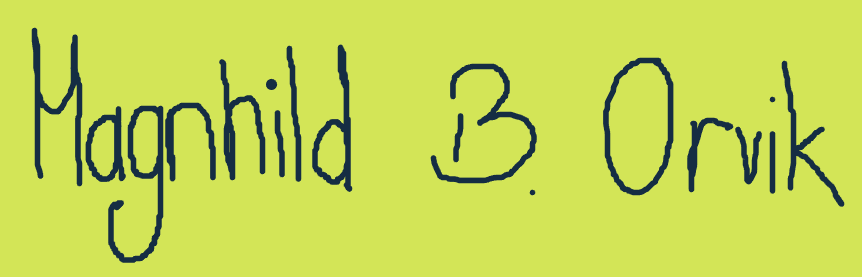 Magnhild B. Orvik